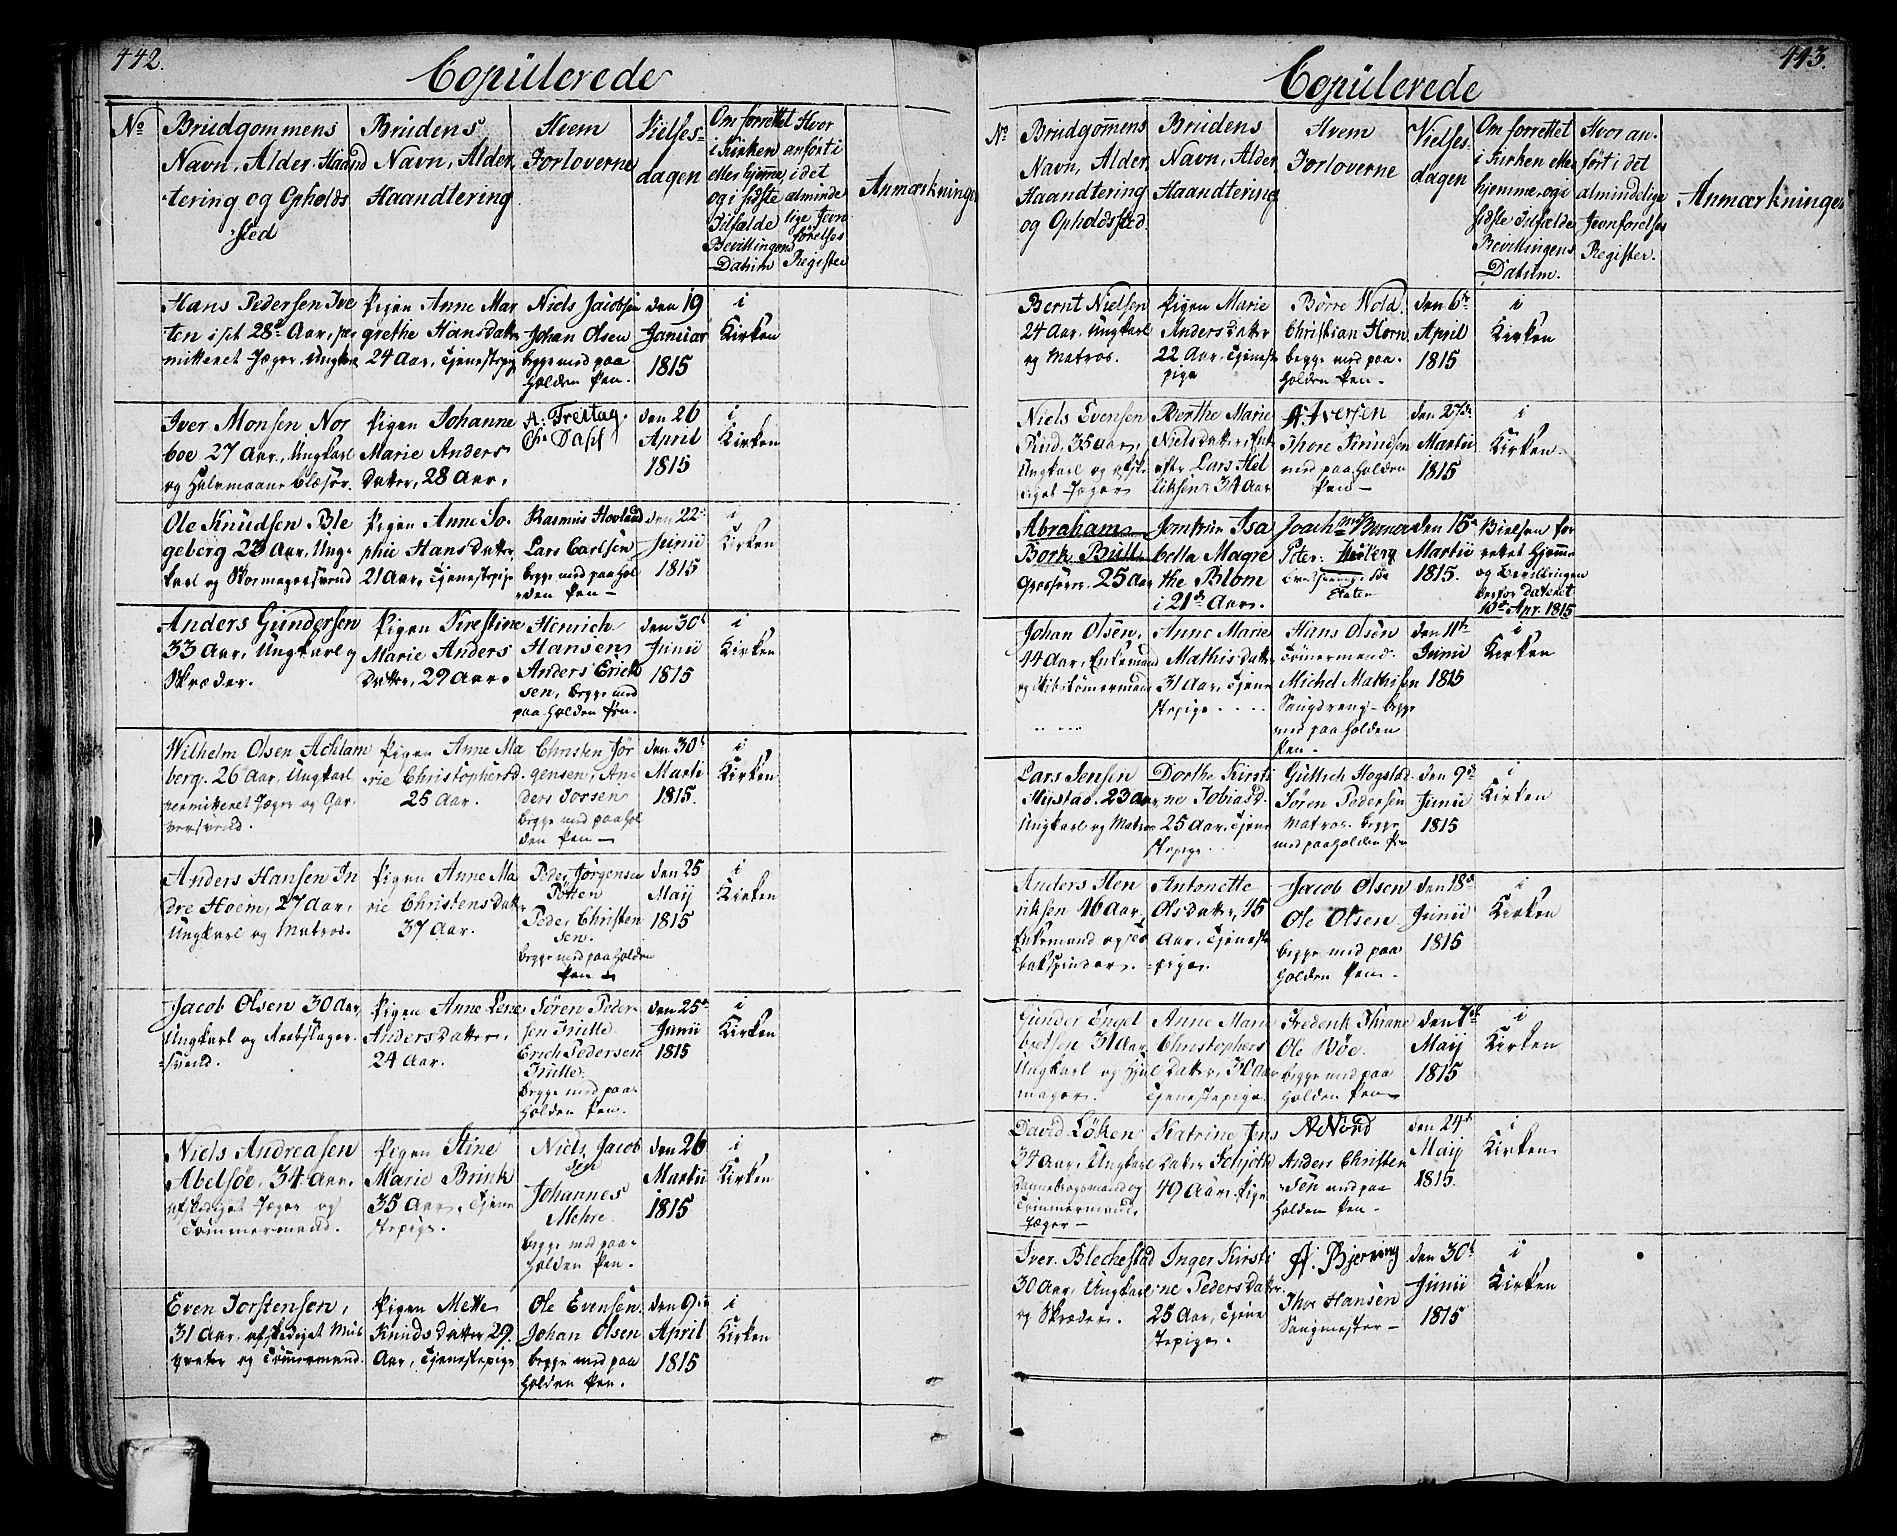 442.
Copulerede
No
Brudgommens
Navn, Alder, Haand
tering og Opholds
sted
Brudens
Navn, Alder,
Haandtering
Hvem
Forloverne
Vielses-
dagen
Om forrettet
i Kirken
eller hjemme
og i sidste
Tilfælde
Bevillingens
Datum
Hvor
anført i
det
alminde
lige Jevn
førelses
Register
Anmærkninger
Hans Pedersen Tve
ten i sit 28de Aar, per
mitteret Jæger, Ungkarl
Pigen Anne Mar
grethe Hansdatter
24 Aar, Tjenestepige
Niels Jacobsen
Johan Olsen
begge med paa
holden Pen.
den 19
Januar
1815
i
Kirken
Iver Monsen Nor
boe 27 Aar, Ungkarl
og Halvmaane Blæser.
Pigen Johanne
Marie Anders
Datter, 28 Aar,
A: Freitag.
Chr Dahl
den 26
April
1815
i
Kirken
Ole Knudsen Ble
geberg 23 Aar, Ung-
karl og Skomagersvend
Pigen Anne So-
phie Hansdatter
21 Aar, Tjenestepige
Rasmus Hovland
Lars Carlsen
begge med paahol
den Pen -
den 22
Junii
1815
i
Kirken
Anders Gundersen
33 Aar, Ungkarl og
Skræder.
Pigen Kirestine
Marie Anders
Datter, 29 Aar.
Henrich
Hansen
Anders Erick
sen, begge med
paaholden Pen.
den 30t
Junii
1815
i
Kirken
Wilhelm Olsen Achlam
berg. 26 Aar, Ungkarl
permitteret Jæger og Gar
versvend.
Pigen Anne Ma
rie Christophersd.
25 Aar.
Christen Jør
gensen, An
ders Torsen
begge med paahol
den Pen -
den 30t
Marti
1815.
i
Kirken
Anders Hansen In
dre Hoem, 27 Aar,
Ungkarl og Matros.
Pigen Anne Ma
rie Christensdatter
37 Aar.
Peder Jørgensen
Potten
Peder Christen
sen.
begge med paaholden
Pen -
den 25
Maij
1815
i
Kirken
Jacob Olsen 30 Aar,
Ungkarl og Reebslager-
svend.
Pigen Anne Lene
Andersdatter,
24 Aar.
Søren Peder-
sen Trulle
Erich Pedersen
Trulle.
begge med paa-
holden Pen.
den 25de
Junii
1815
i
Kirken
Niels Andreasen
Abelsøe, 34 Aar.
afskediget Jæger og
Tømmermand.
Pigen Stine
Marie Brink
35 Aar, Tjene
stepige.
Niels Jacob
sen
Johannes
Mehre.
begge med paa-
holden Pen.
den 26
Martii
1815
i
Kirken
Even Torstensen,
31 Aar, afskediget Mus
qveter og Tømmermand.
Pigen Mette
Knudsdatter 29.
Aar, Tjenestepige
Ole Evensen
Johan Olsen
begge med paa
holden Pen.
den 9de
April
1815
i
Kirken
443.
Copulerede
No
Brudgommens
Navn, Alder
Haandtering
og Opholdssted.
Brudens
Navn, Alder,
Haandtering
Hvem
Forloverne
Vielses-
dagen
Om forrettet
i Kirken eller
hjemme, og i
sidste Tilfælde
Bevillingens
Datum.
Hvor an-
ført i det
almindelige
Jevnførelses
Register.
Anmærkninger
Bernt Nielsen
24 Aar, Ungkarl
og Matros.
Pigen Marie
Andersdatter
22 Aar, Tjeneste
pige
Børre Wold.
Christian Horn
begge med paa-
holden Pen -
den 6te
April
1815
i
Kirken
Niels Evensen
Rud, 35 Aar,
Ungkarl og afske
diget Jæger
Berthe Marie
Nielsdatter, Enke
efter Lars Hel
liksen 34 Aar
A. Iversen
Thore Knudsen
med paaholden
Pen -
den 27de
Martii
1815
i
Kirken.
Abraham
Bork Bull
Grosserer. 25 Aar
Jomfrue Isa
bella Magre
the Blom
i 21de Aar.
Joach
Peter
den 15de
Martii
1815.
Vielsen for
rettet hjemme
og Bevillingen
derfor dateret
10de Apr. 1815
Johan Olsen,
44 Aar, Enkemand
og Skibstømmermand
Anne Marie
Mathisdatter
31 Aar, Tjene
stepige
Hans Olsen
Tømmermand.
Michel Mathisen
Saugdreng - begge
med paaholden
Pen -
den 11te
Junii
1815
i
Kirken
Lars Jensen
Mystad, 23 Aar
Ungkarl og Matros
Dorthe Kirsti
ne Tobiasd.
25 Aar, Tjene
stepige
Guttich Hogstad
Søren Pedersen
Matros. begge
med paaholden Pen
den 9de
Junii
1815
i
Kirken
Anders Hen
riksen 46 Aar,
Enkemand og To
bakspinder.
Antonette
Olsdatter, 45
Aar, Tjeneste
pige.
Jacob Olsen
Ole Olsen
begge med paa
holden Pen.
den 18de
Junii
1815
i
Kirken
Gunder Engel
bretsen 31 Aar
Ungkarl og Hjul
mager.
Anne Marie
Christophers
Datter, 30 Aar
Tjenestepige.
Frederik Thrane
Ole Bøe.
begge med paa
holden Pen.
den 7de
Maij
1815
i
Kirken
David Løken
34 Aar, Ungkarl
Dannebrogsmand og
Tømmermand,
Jæger -
Katrine Jens
Datter Schjoth
49 Aar. Pige
Anders Christen
sen med paa
holden Pen -
den 24de
Maij
1815.
i
Kirken
Iver Blechestad
30 Aar, Ungkarl
og Skræder.
Inger Kirsti
ne Pedersdatter
25 Aar, Tjene
stepige.
A. Bjerring
Thor Hansen
Saugmester -
den 30t
Junii
1815
i
Kirken